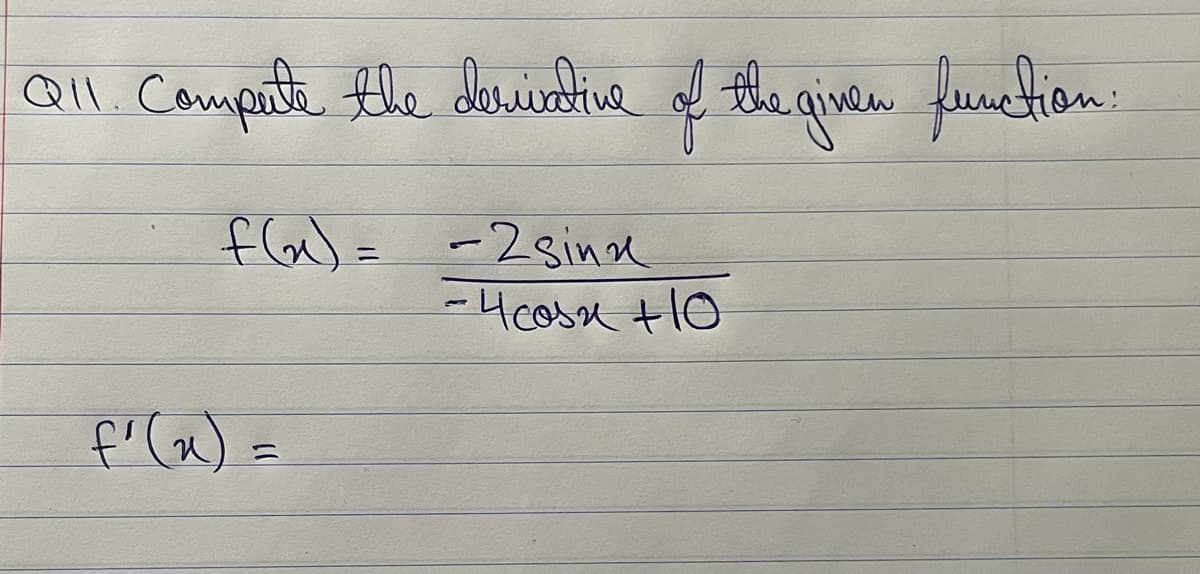 Q11. Compute the derivative of the given function:
f(x) = -2sinx
-4cosx +10
f'(x) =